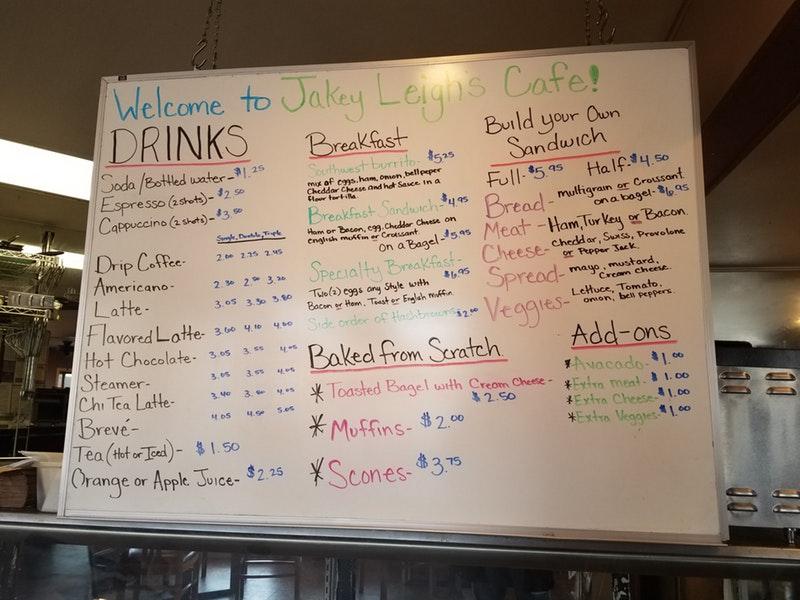 Welcome to Jakey Leigh's Cafe!
DRINKS
Soda/Bottled water- $1.25
Espresso (2 shots)- $2.50
Cappuccino (2 shots)- $3.50
Single, Double, Triple
Drip Coffee- 2.00 2.25 2.45
Americano- 2.30 2.50 3.20
Latte- 3.05 3.30 3.80
Flavored Latte- 3.60 4.10 4.60
Hot Chocolate- 3.05 3.55 4.05
Steamer- 3.05 3.55 4.05
Chi Tea Latte- 3.40 3.80 4.05
Brevé- 4.05 4.50 5.05
Tea (Hot or Iced)- $1.50
Orange or Apple Juice- $2.25
Breakfast
Southwest burrito- $5.25
mix of eggs, ham, onion, bell peper
Cheddar Cheese and hot Sauce in a
flour tortilla.
Breakfast Sandwich- $4.95
Ham or Bacon, egg, Cheddar Cheese on
English muffin or Croissant
on a Bagel- $5.95
Specialty Breakfast- $6.95
Two (2) eggs any Style with
Bacon or Ham, Toast or English Muffin.
Side order of Hashbrowns $2.00
Baked from Scratch
* Toasted Bagel with Cream Cheese-
$2.50
* Muffins- $2.00
* Scones- $3.75
Build your Own
Sandwich
Full- $5.95 Half- $4.50
Bread- multigrain or Croissant
on a bagel- $6.95
Meat- Ham, Turkey or Bacon.
Cheese- cheddar, Swiss, Provolone
or Pepper Jack.
Spread- mayo, mustard,
Cream cheese.
Veggies- Lettuce, Tomato,
onion, bell peppers.
Add-ons
*Avacado- $1.00
*Extra meat- $1.00
*Extra Cheese- $1.00
*Extra Veggies- $1.00